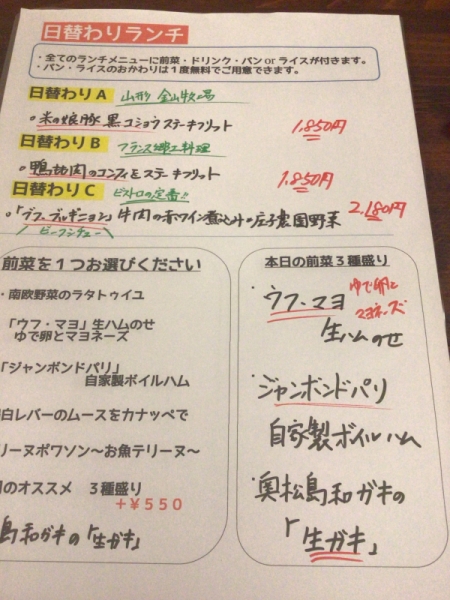 日替わりランチ
・全てのランチメニューに前菜・ドリンク・パン or ライスが付きます。
・パン・ライスのおかわりは１度無料でご用意できます。
日替わり A 山形 金山牧場
米の娘豚 黒コショウステーキフリット 1.850円
日替わり B フランス郷土料理
鴨胸肉のコンフィとステーキフリット 1.850円
日替わり C ビストロの定番!!
「ブフ・ブルギニョン」牛肉の赤ワイン煮込み 庄子農園野菜 2.180円
ビーフシチュー
前菜を１つお選びください
・南欧野菜のラタトゥイユ
「ウフ・マヨ」生ハムのせ
ゆで卵とマヨネーズ
「ジャンボンドパリ」
自家製ボイルハム
白レバーのムースをカナッペで
リーヌポワソン～お魚テリーヌ～
のオススメ ３種盛り
＋￥５５０
島和ガキの「生ガキ」
本日の前菜３種盛り
・ウフ・マヨ ゆで卵と
マヨネーズ
生ハムのせ
・ジャンボンドパリ
自家製ボイルハム
・奥松島和ガキの
「生ガキ」